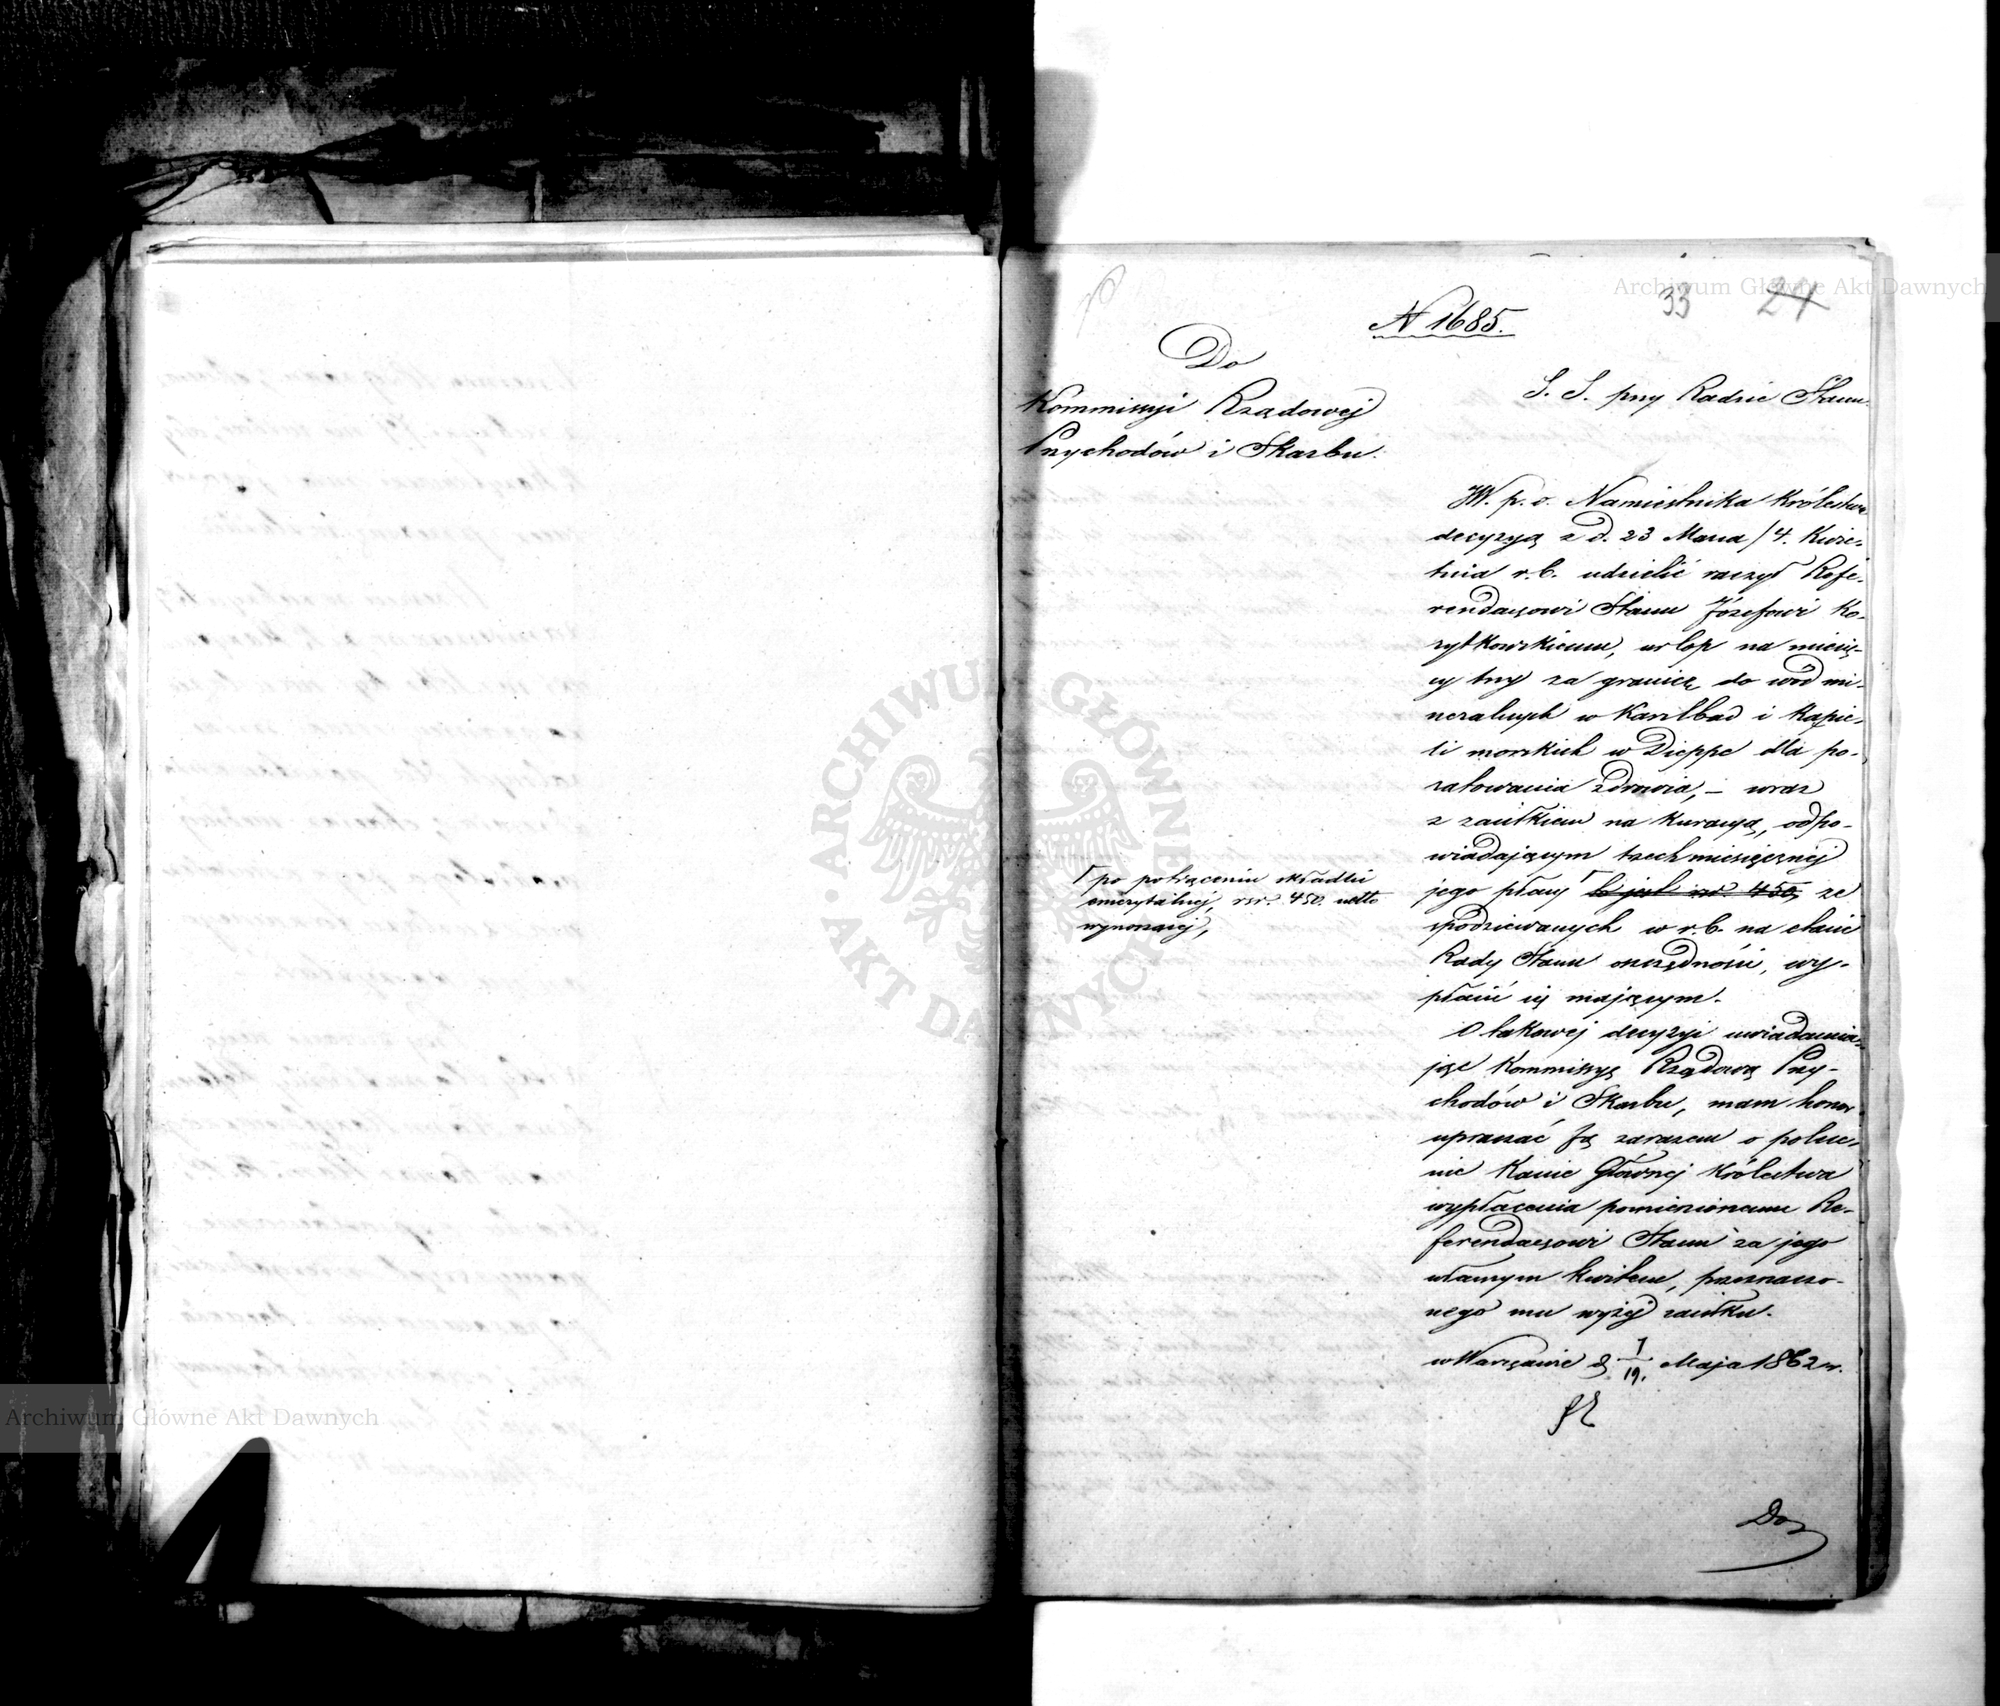 33 24
N 1685.
Do
Kommissyi Rządowej
Przychodów i Skarbu.
S. S. przy Radzie Stanu.
JW. p. o. Namiestnika Królestwa
decyzyą z d. 23 Marca / 4. Kwie-
tnia r. b. udzielić raczył Refe-
rendarzowi Stanu Józefowi Ko-
rytkowskiemu, urlop na miesię-
cy trzy za granicę do wód mi-
neralnych w Karlbad i kąpie-
li morskich w Dieppe dla po-
ratowania zdrowia, – wraz
z zasiłkiem na kuracyą, odpo-
wiadającym trzechmiesięcznej
jego płacy to jest rsr. 450, ze
spodziewanych w r. b. na etacie
Rady Stanu oszczędności, wy-
płacić się mającym.
po potrąceniu składki
emerytalnej, rsr. 450. netto
wynoszącej,
O takowej decyzyi uwiadamia-
jąc Kommissyę Rządową Przy-
chodów i Skarbu, mam honor
upraszać Ją zarazem o polece-
nie Kassie Głównej Królestwa
wypłacenia pomienionemu Re-
ferendarzowi Stanu za jego
własnym kwitem, przeznaczo-
nego mu wyżej zasiłku.
w Warszawie d. 7/19. Maja 1862 r.
Do
ARCHIWUM GŁÓWNE AKT DAWNYCH
Archiwum Główne Akt Dawnych
Archiwum Główne Akt Dawnych